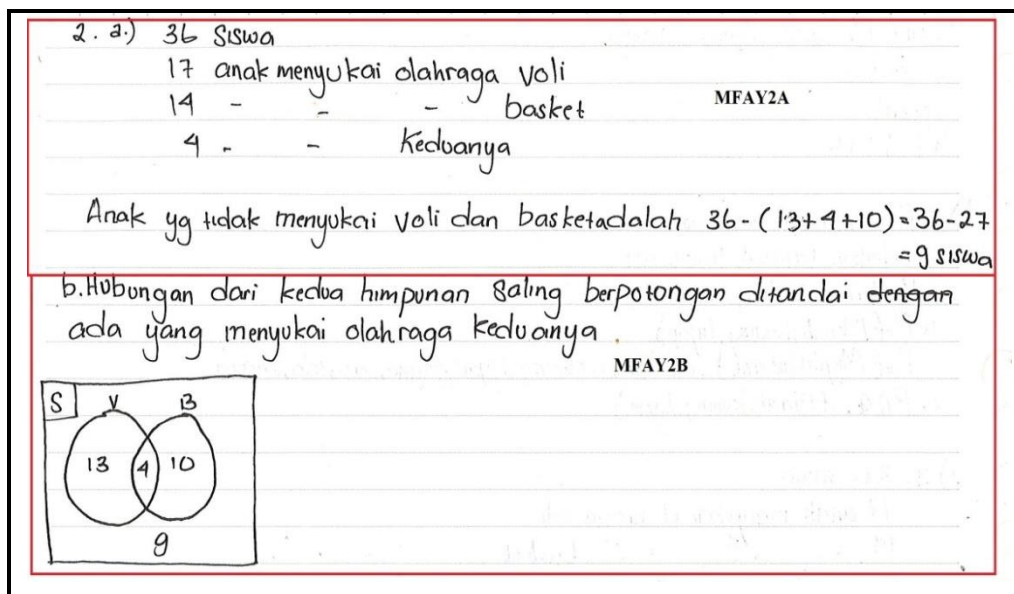 2. a.) 36 siswa
17 anak menyukai olahraga voli
14 - - - basket
MFAY2A
4 - - Keduanya
Anak yg tidak menyukai voli dan basketadalah 36-(13+4+10)=36-27
=9 siswa
b.Hubungan dari kedua himpunan saling berpotongan ditandai dengan
ada yang menyukai olahraga keduanya.
MFAY2B
S V B
13 4 10
9